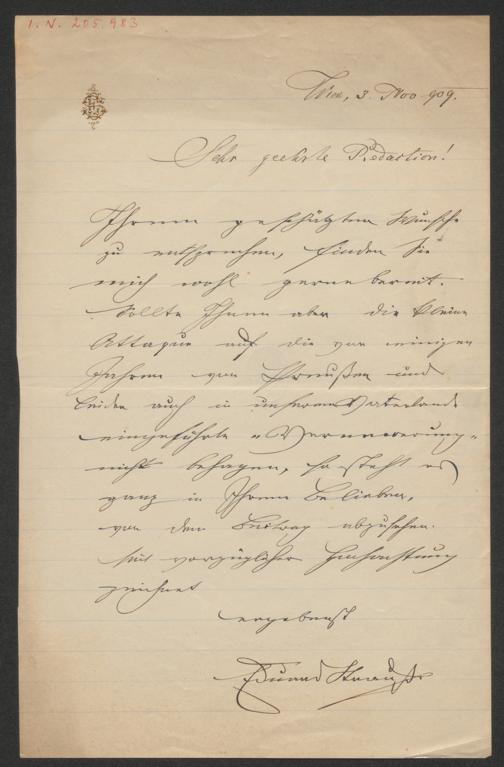 I. N. 205.983
Wien, 3. Nov 909.
Sehr geehrte Redaction!
Ihrem geschätzten Wunsche
zu entsprechen, finden Sie
mich wohl gerne bereit.
Sollte Ihnen aber die kleine
Attaque auf die vor einigen
Jahren von Preußen und
leider auch in unserem Vaterlande
eingeführte
nicht behagen, so steht es
ganz in Ihrem Belieben,
von dem Beitrag abzusehen.
Mit vorzüglicher Hochachtung
zeichnet
ergebenst
Eduard Strauß